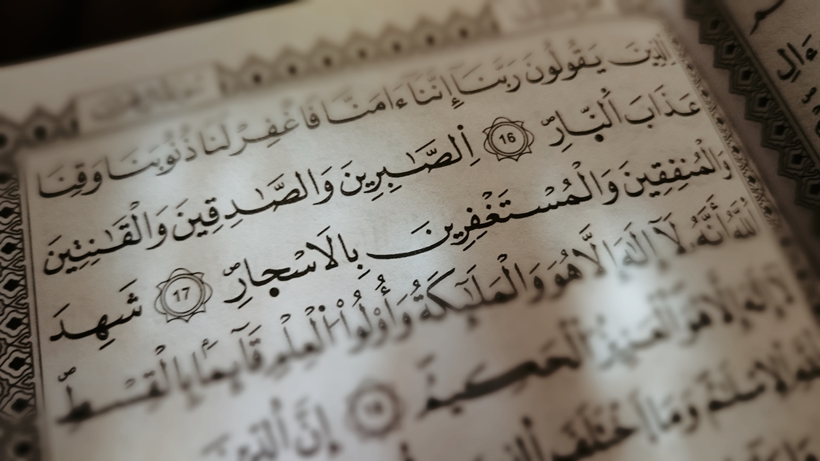 الذِينَ يَقُولُونَ رَبَّنَا إِنَّنَا ءَامَنَّا فَاغْفِرْ لَنَا ذُنُوبَنَا وَقِنَا
عَذَابَ النَّارِ 16 الصَّٰبِرِينَ وَالصَّٰدِقِينَ وَالْقَٰنِتِينَ
وَالْمُنفِقِينَ وَالْمُسْتَغْفِرِينَ بِالَاسْحارِ 17 شَهِدَ
اللَّهُ أَنَّهُۥ لَآ إِلَٰهَ إِلَّا هُوَ وَالْمَلَٰٓئِكَةُ وَأُوْلُوا الْعِلْمِ قَآئِمًا بِالْقِسْطِ
لَآ إِلَٰهَ إِلَّا هُوَ الْعَزِيزُ الْحَكِيمُ 18 إِنَّ الدِّينَ
اللَّهِ الِاسْلَٰمُ وَمَا اخْتَلَفَ